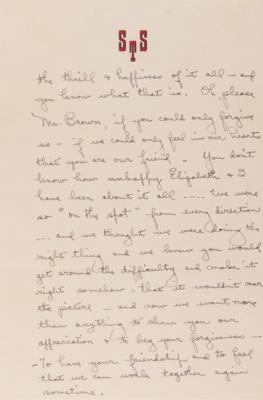 STS
the thrill & happiness of it all – and
you know what that is. Oh, please
Mr. Brown, if you could only forgive
us – if we could only feel in our hearts
that you are our friend – You don't
know how unhappy Elizabeth & I
have been about it all ..... We were
so "on the spot" – from every direction
... and we thought we were doing the
right thing and we knew you would
get around the difficulty and make it
right somehow – that it wouldn't mar
the picture – and now we want more
than anything to show you our
affreciation & to beg your forgiveness –
– To have your friendship and to feel
that we can work together again
sometime.